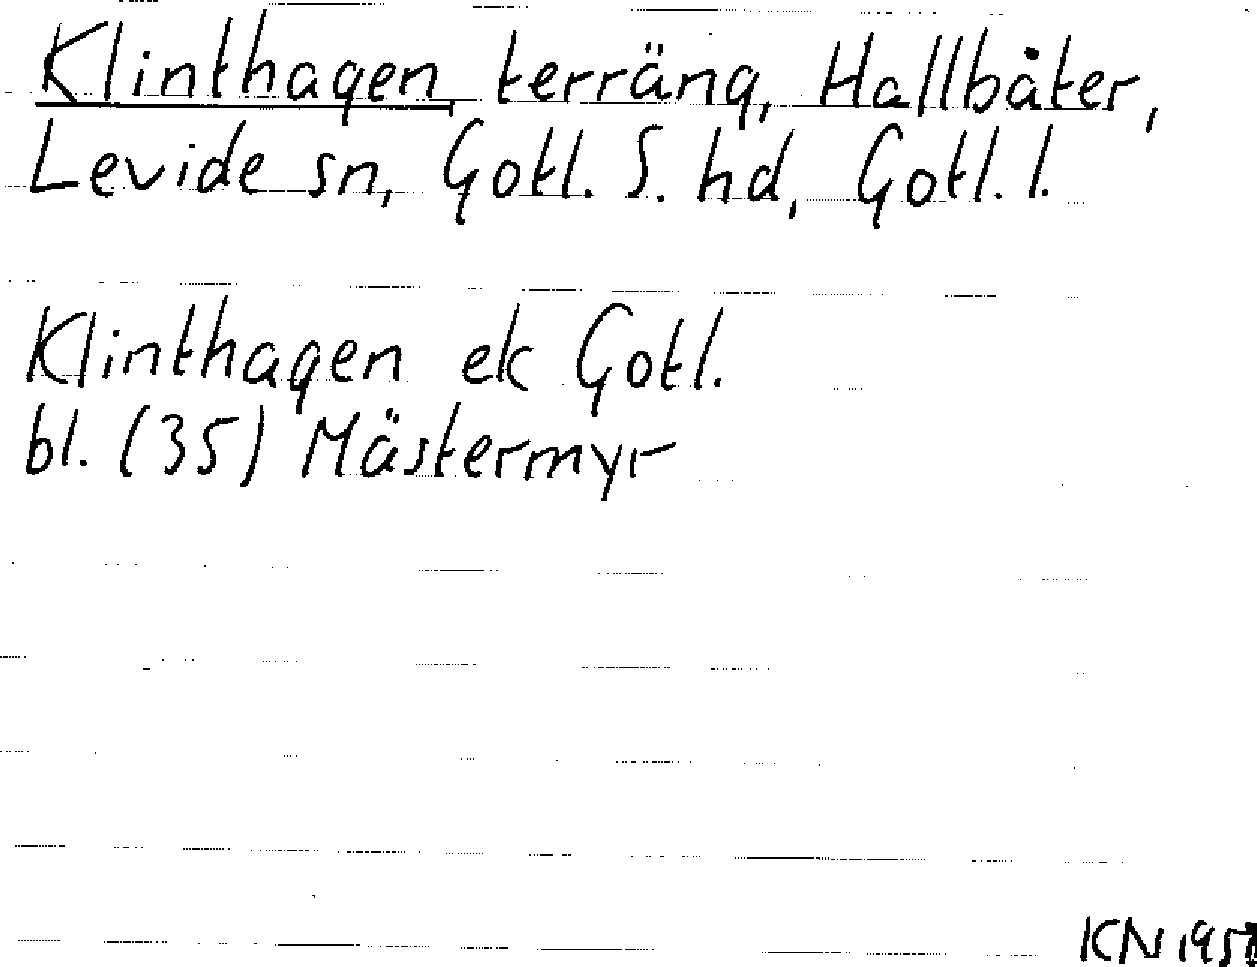 Klinthagen terräng, Hallbåter,
Levide sn, Gotl. S. hd, Gotl. l.
Klinthagen ek Gotl.
bl. (35) Mästermyr
KN